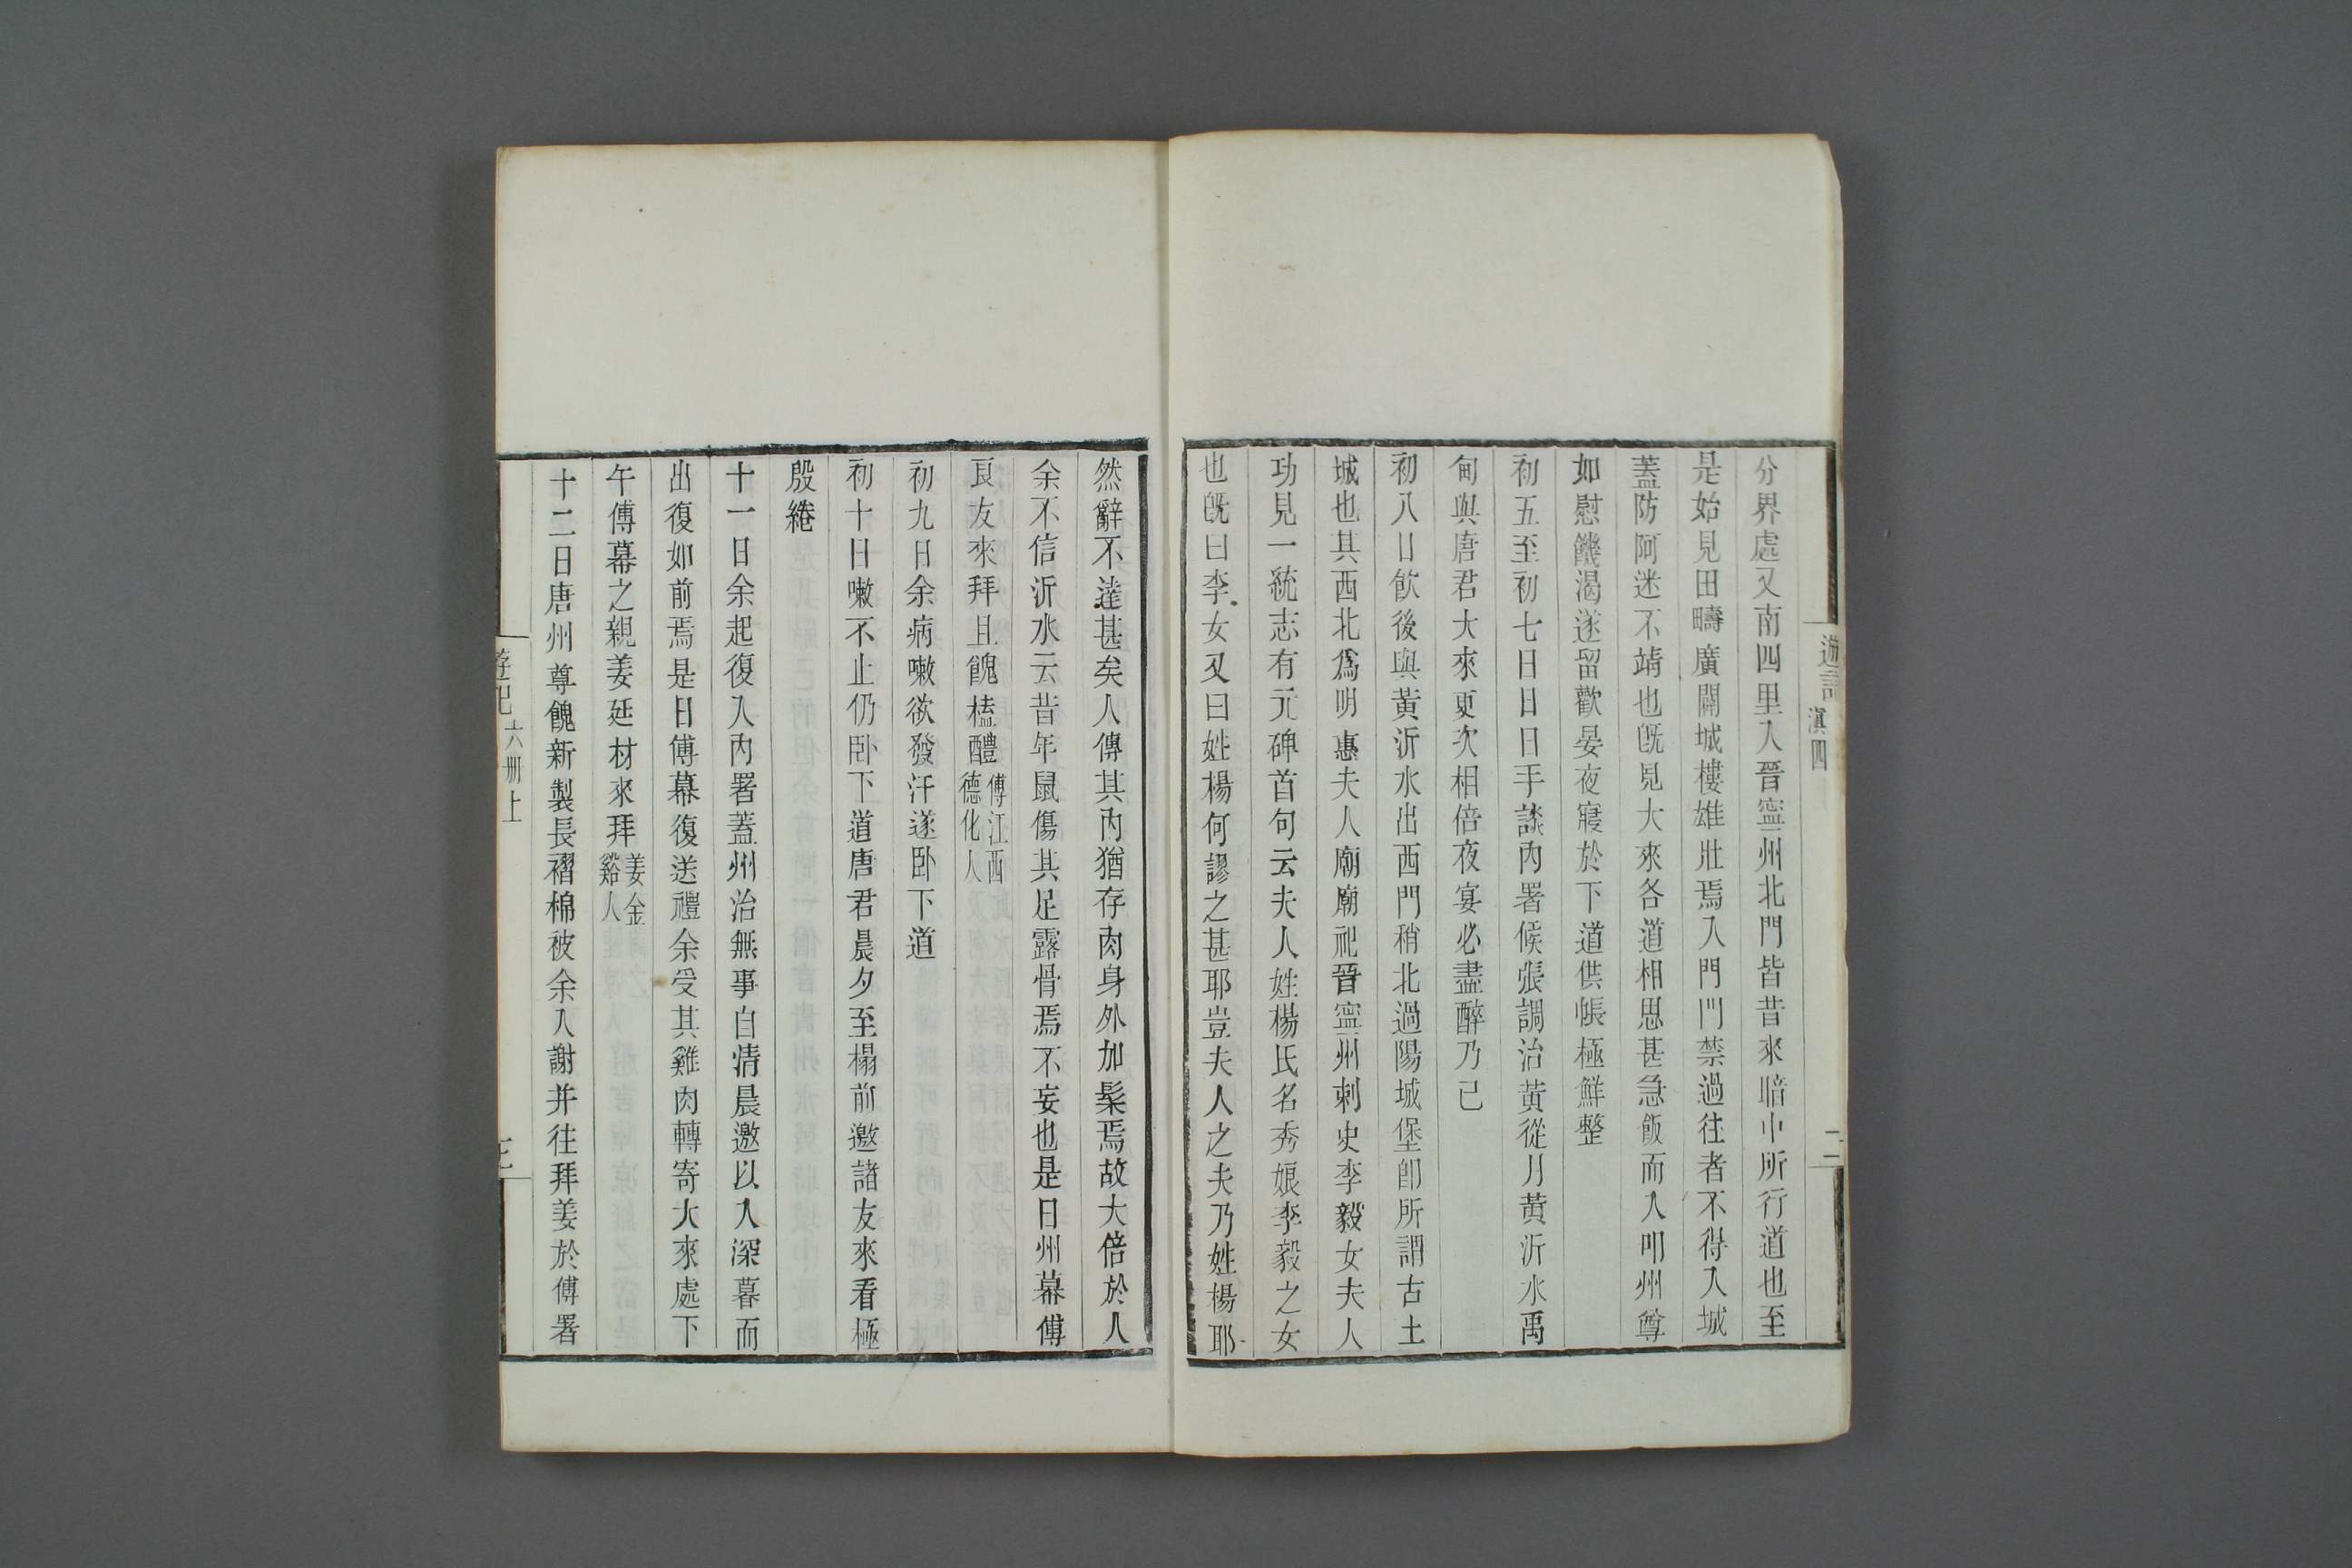 遊記
滇四
二
分界處又南四里入晉寧州北門皆昔來暗中所行道也至
是始見田疇廣闢城樓雄壯焉入門門禁過往者不得入城
蓋防阿迷不靖也旣見大來各道相思甚急飯而入叩州尊
如慰饑渴遂留歡晏夜寢於下道供帳極鮮整
初五至初七日日日手談內署候張調治黃從月黃沂水禹
甸與唐君大來更次相倍夜宴必盡醉乃已
初八日飮後與黃沂水出西門稍北過陽城堡卽所謂古土
城也其西北爲明惠夫人廟廟祀晉寧州刺史李毅女夫人
功見一統志有元碑首句云夫人姓楊氏名秀娘李毅之女
也旣曰李女又曰姓楊何謬之甚耶豈夫人之夫乃姓楊耶
然辭不達甚矣人傳其內猶存肉身外加髹焉故大倍於人
余不信沂水云昔年鼠傷其足露骨焉不妄也是日州幕傅
良友來拜且餽榼醴傅江西德化人
初九日余病嗽欲發汗遂卧下道
初十日嗽不止仍卧下道唐君晨夕至榻前邀諸友來看極
殷綣
十一日余起復入內署蓋州治無事自情晨邀以入深暮而
出復如前焉是日傅幕復送禮余受其雞肉轉寄大來處下
午傅幕之親姜延材來拜姜金谿人
十二日唐州尊餽新製長褶棉被余入謝并往拜姜於傅署
遊記
六册上